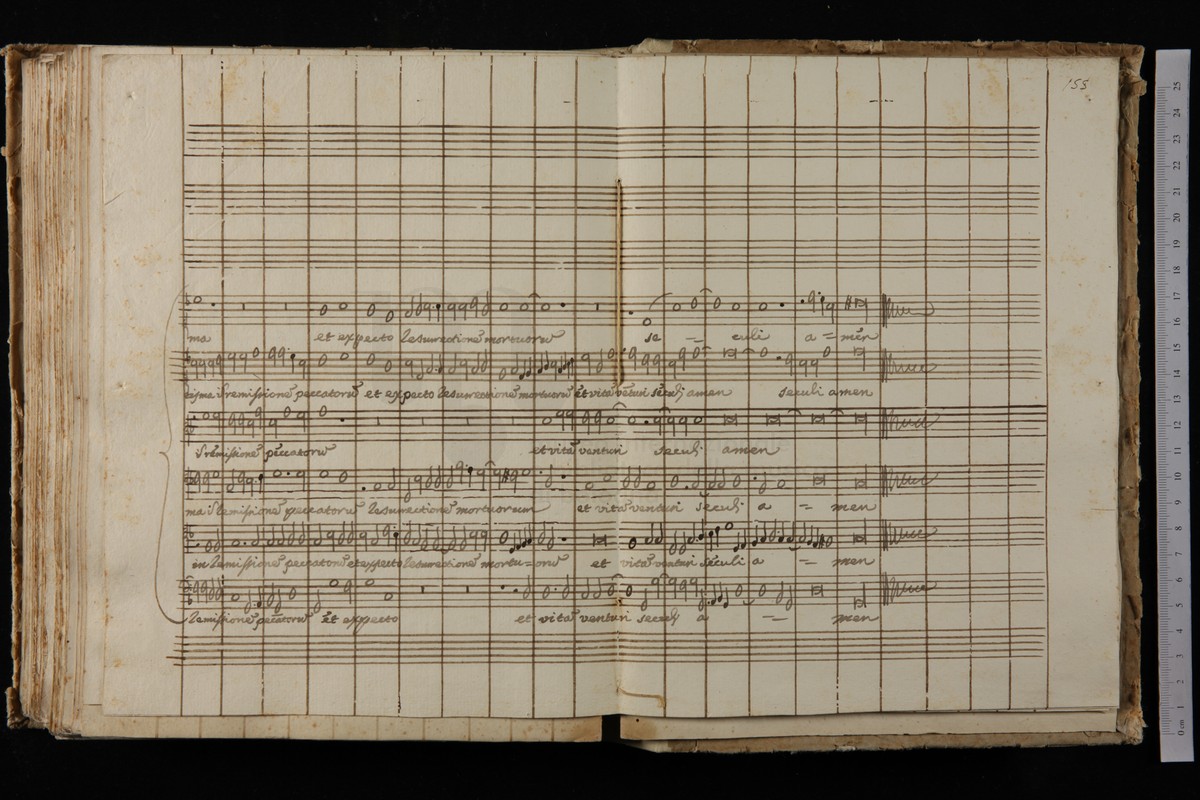 155
ma et expecto Resurrectionē mortuorū se - - culi a = mēn
tisma ī remissionē peccatorū et expecto Resurrectionē mortuorū et vitā venturi seculi amen seculi amen
ī remissionē peccatorū et vitā venturi seculi amen
ma ī Remissionē peccatorū Resurrectionē mortuorum et vitā venturi seculi a - = men
in Remissionē peccatorū et expecto Resurrectionē mortu=orū et vitā venturi seculi a - = men
Remissionē peccatorū et expecto et vitā venturi seculi a - = men
0 cm 1 2 3 4 5 6 7 8 9 10 11 12 13 14 15 16 17 18 19 20 21 22 23 24 25